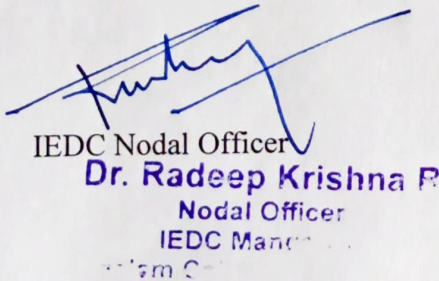 IEDC Nodal Officer
Dr. Radeep Krishna R
Nodal Officer
IEDC